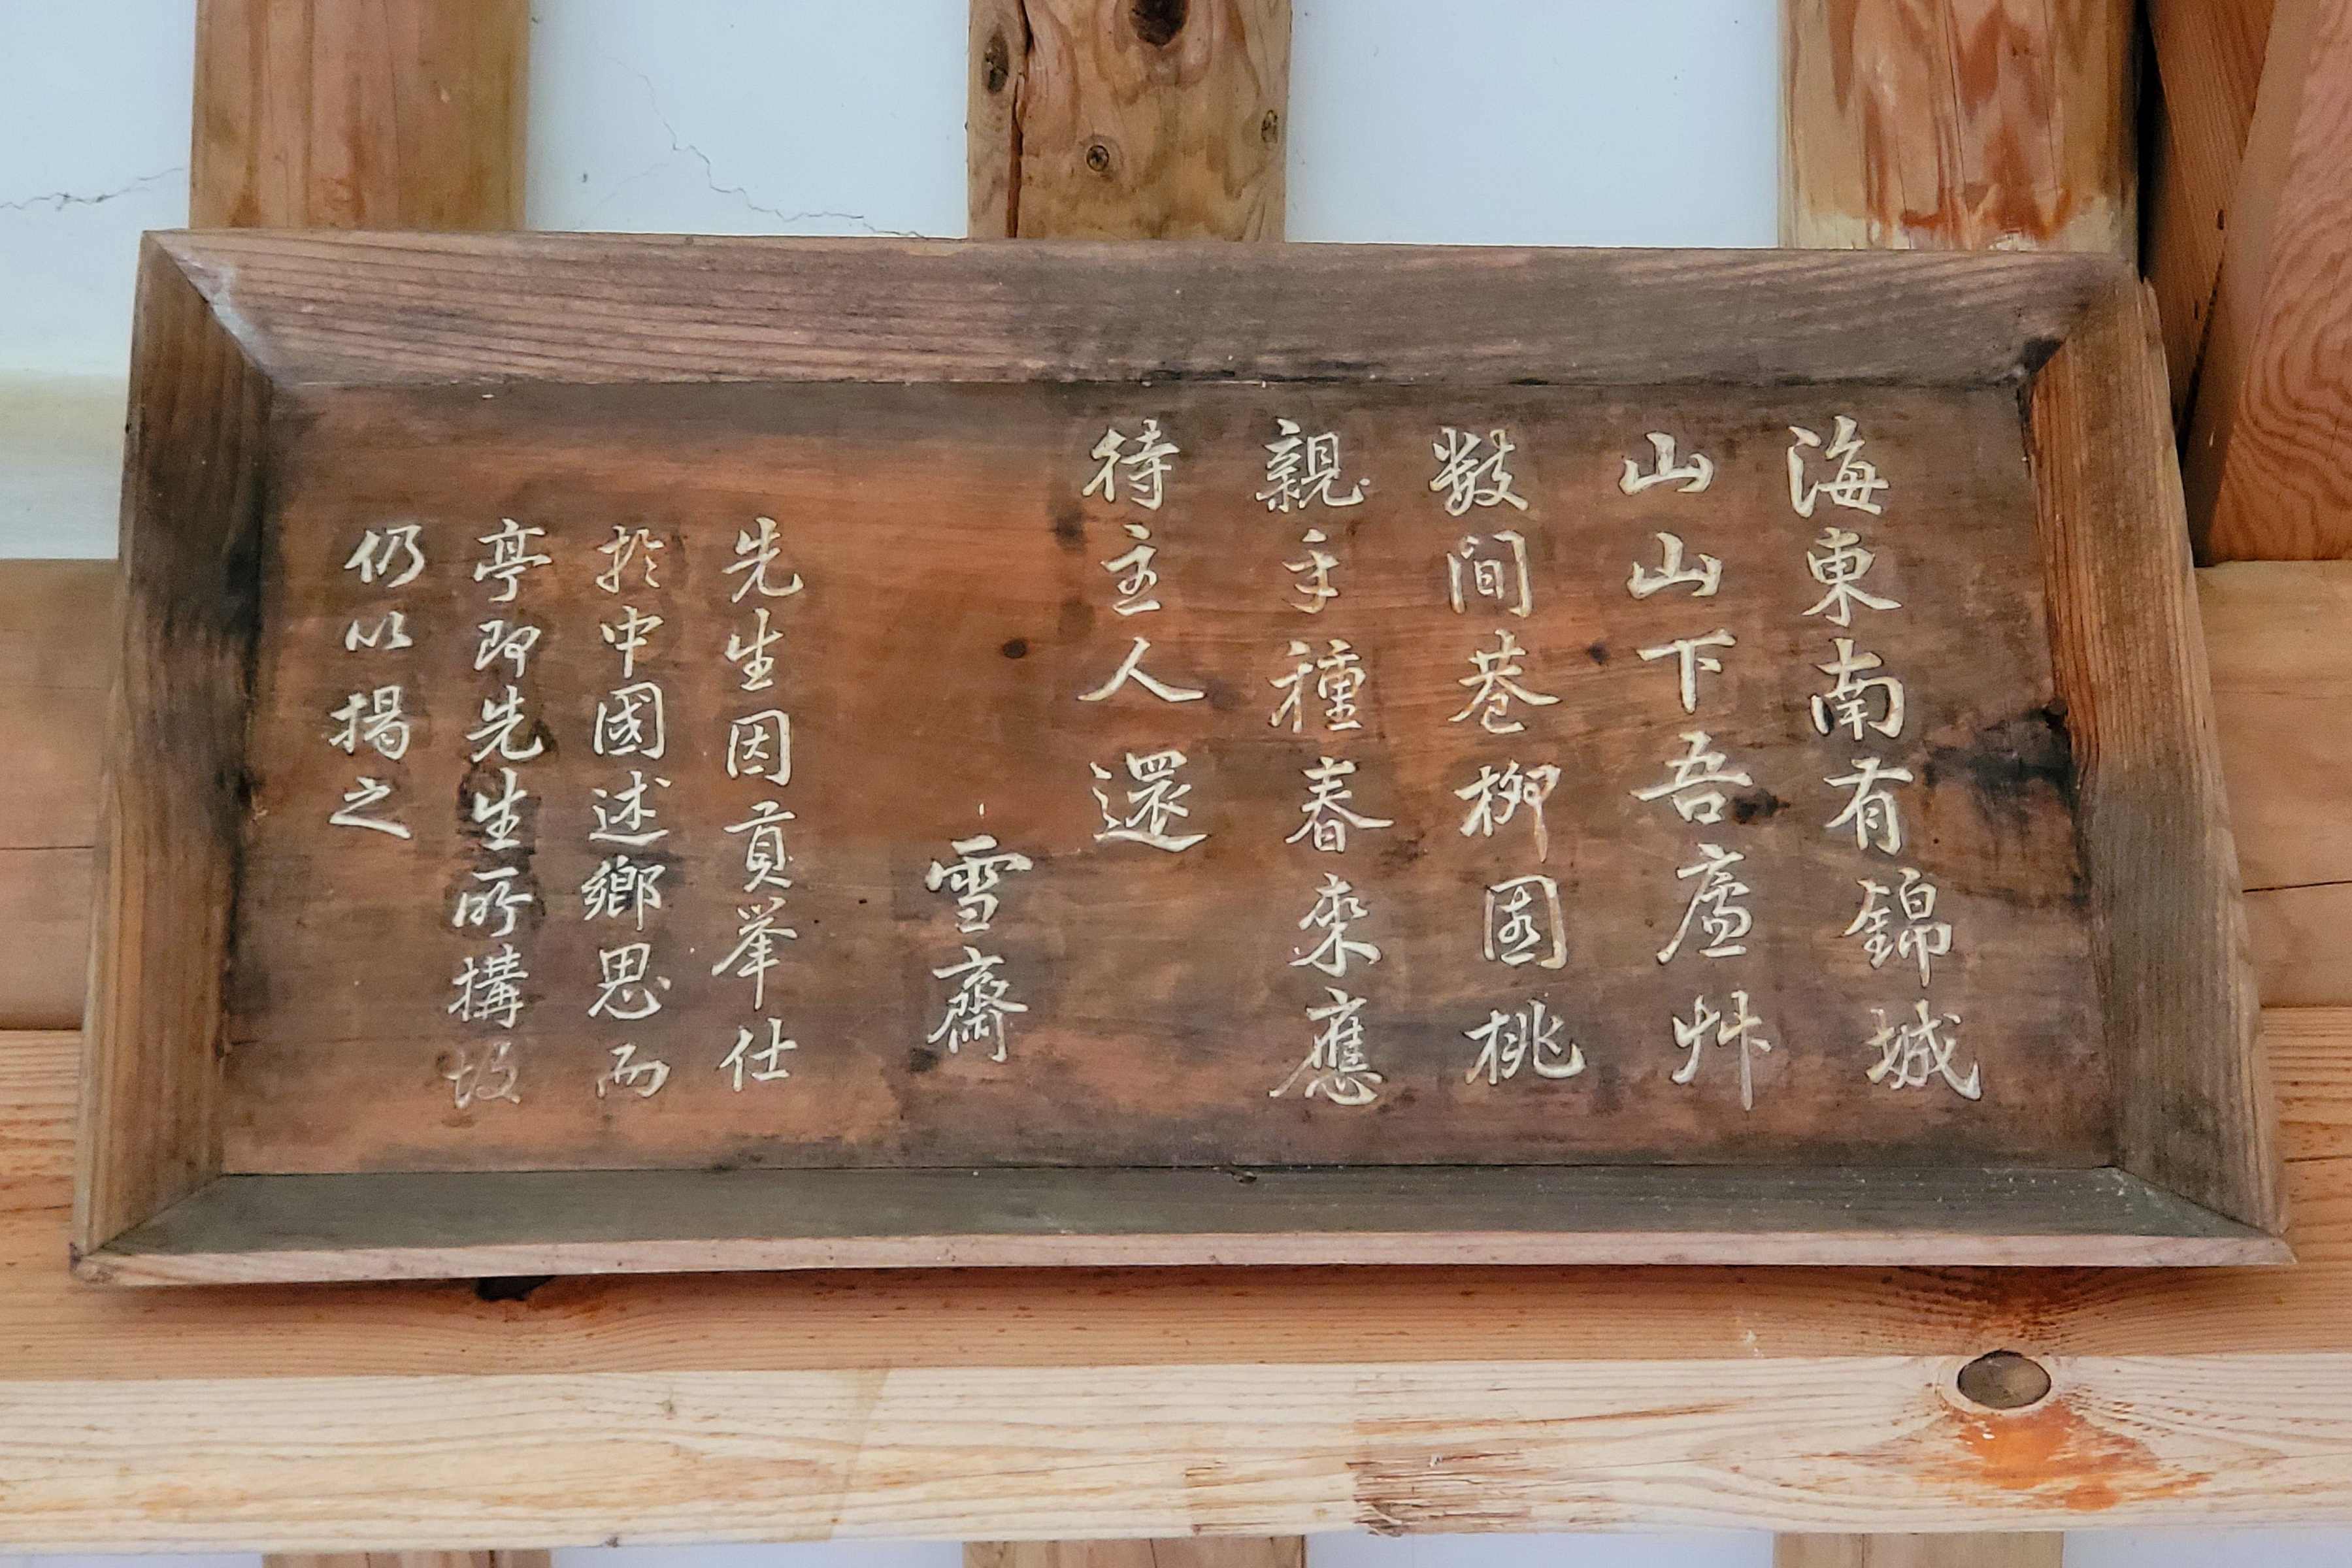 海東南有錦城
山山下吾廬艸
數間巷柳園桃
親手種春來應
待主人還
雪齋
先生因貢擧仕
於中國述鄉思而
亭即先生所構故
仍以揭之